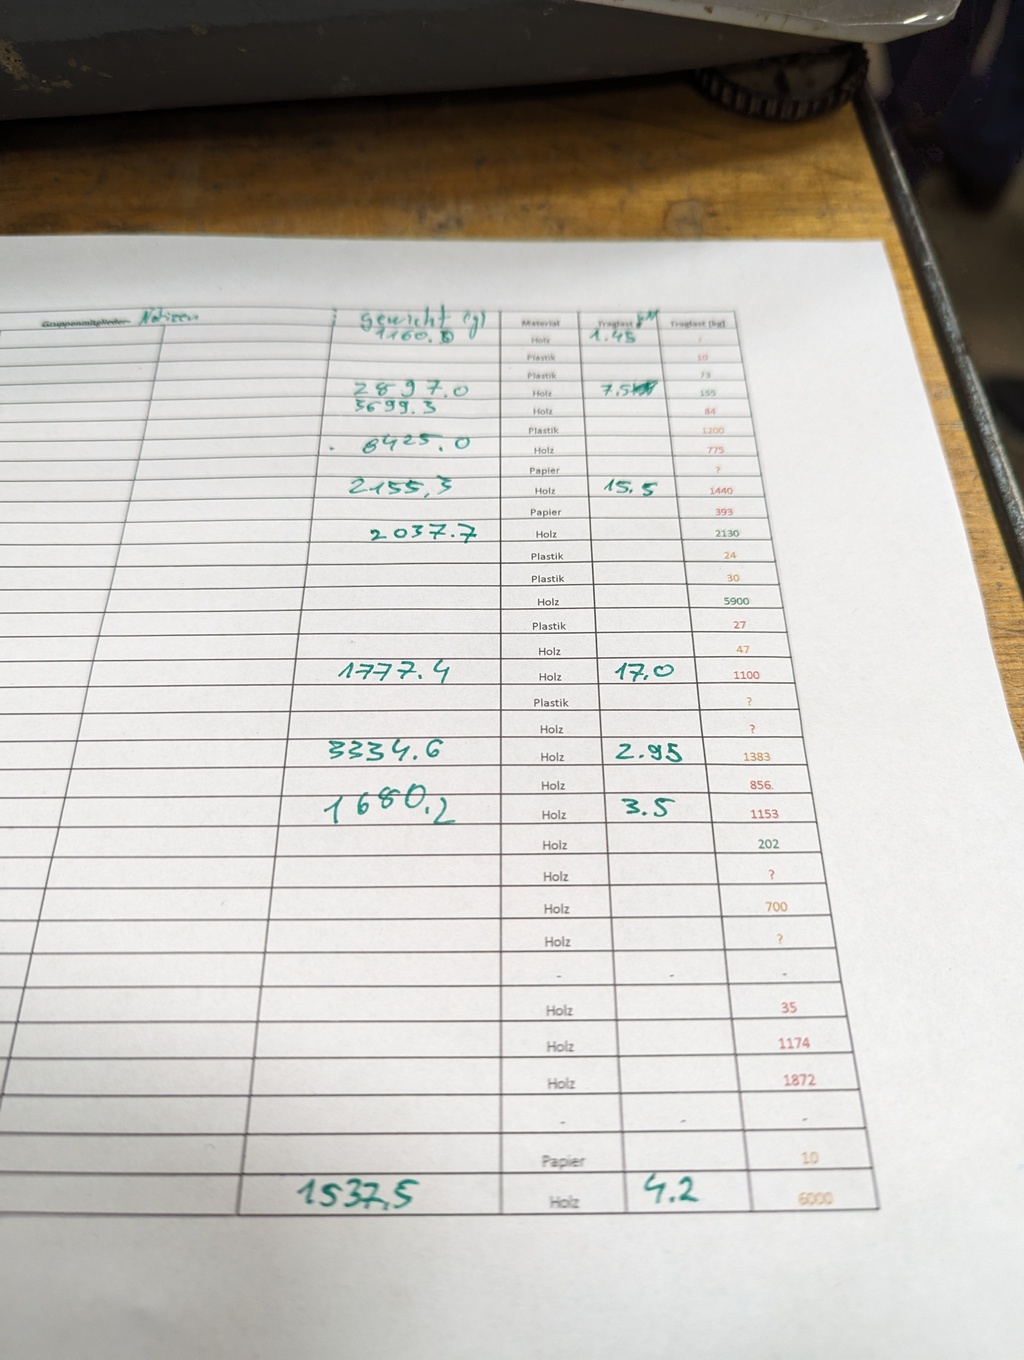 Gruppenmitglieder Notizen gewicht (g) Material Traglast kN Traglast [kg]
1160. Holz 1.45 ?
Plastik 10
Plastik 75
2897.0 Holz 7.5 155
3699.3 Holz 84
Plastik 1200
6425.0 Holz 775
Papier ?
2155,3 Holz 15.5 1440
Papier 393
2037.7 Holz 2130
Plastik 24
Plastik 30
Holz 5900
Plastik 27
Holz 47
1777.4 Holz 17.0 1100
Plastik ?
Holz ?
3334.6 Holz 2.95 1383
Holz 856.
1680.2 Holz 3.5 1153
Holz 202
Holz ?
Holz 700
Holz ?
- - -
Holz 35
Holz 1174
Holz 1872
- - -
Papier 10
1537,5 Holz 4.2 6000